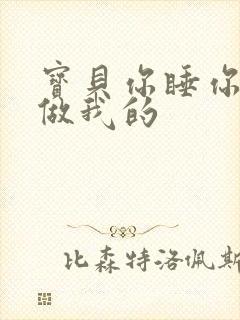 寶貝你睡你
做我的
比森特洛佩斯